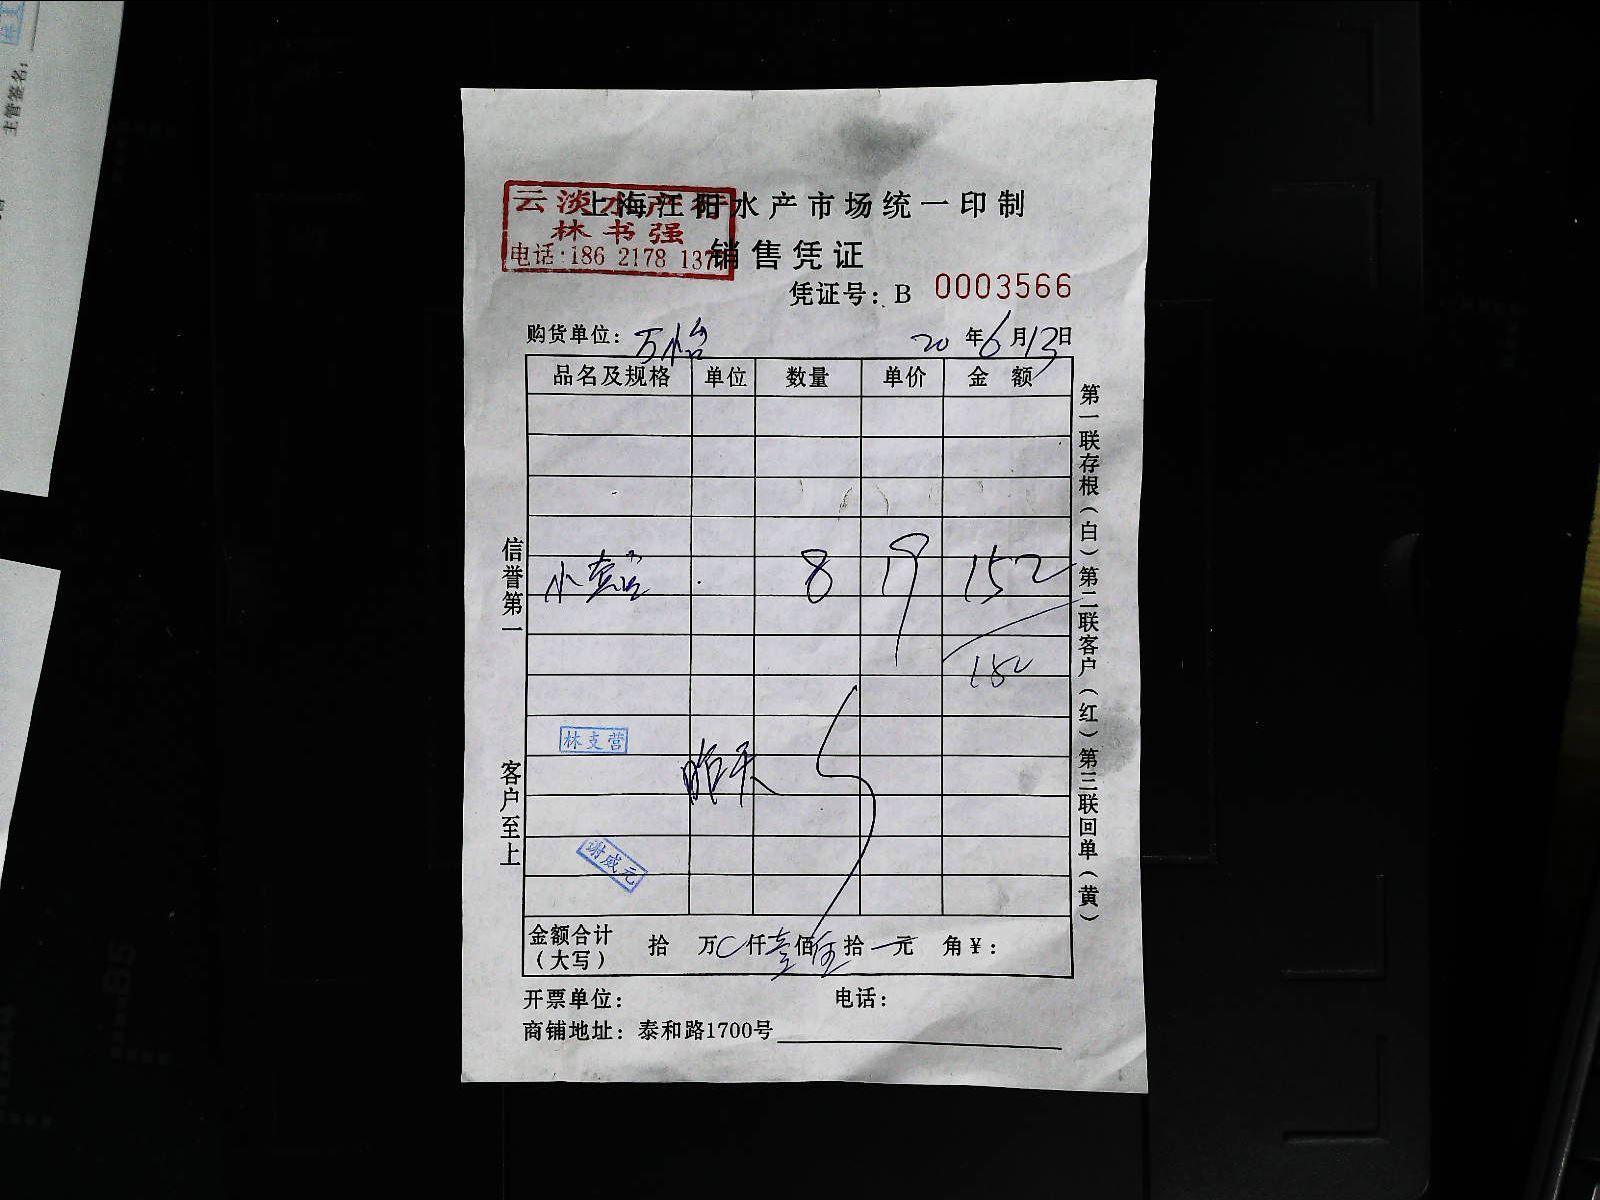 主管签名:
云淡水产行
林书强
电话:186 2178 137
上海江阳水产市场统一印制
销售凭证
凭证号: B 0003566
购货单位: 万怡 20 年 6 月 13 日
品名及规格 单位 数量 单价 金额
小 8 19 152
152
林支营
昨天
谢咸元
金额合计 拾 万 仟 壹 佰 拾 元 角 ¥:
(大写)
开票单位: 电话:
商铺地址: 泰和路1700号
信誉第一
客户至上
第一联存根(白)第二联客户(红)第三联回单(黄)